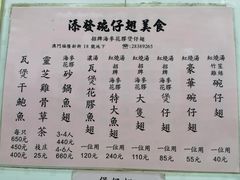 添發碗仔翅美食
招牌海參花膠堂仔翅
澳門福隆新街18號地下
☎:28369265
紅燒湯竹笙雞絲碗仔翅
一位用
40元
紅燒湯碗仔翅
一位用
55元
紅燒湯豪華碗仔翅
一位用
85元
紅燒湯大隻翅
一位用
110元
招牌海參花膠特大魚翅
一位用
240元
濃湯瓦煲花膠翅
一位用
120元
海參花膠砂鍋魚翅
3-4人
440元
4-6人
660元
靈芝雞骨草茶
枝庄
25元
瓦煲干鮑魚
每只
650元
450元
400元